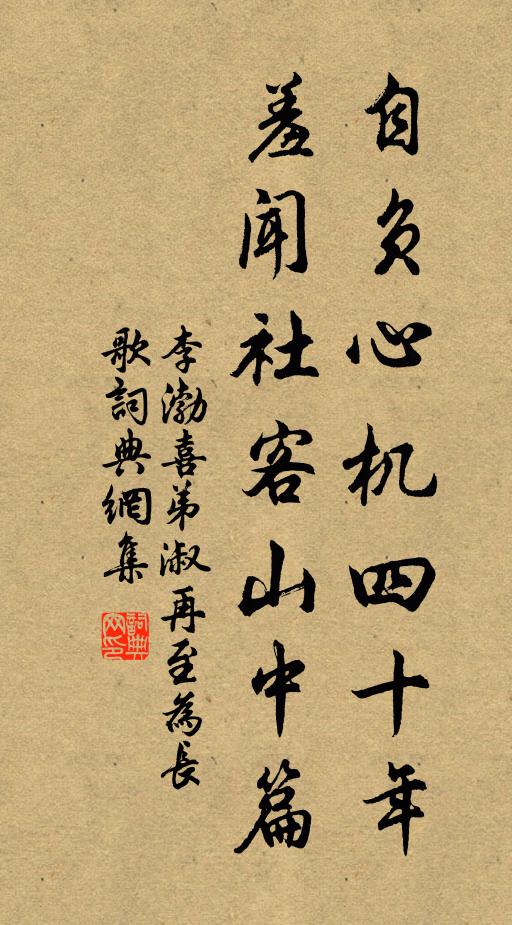 自负心机四十年
羞闻社客山中篇
李渤喜弟淑再至為長
歌詞典網集
詞典网印